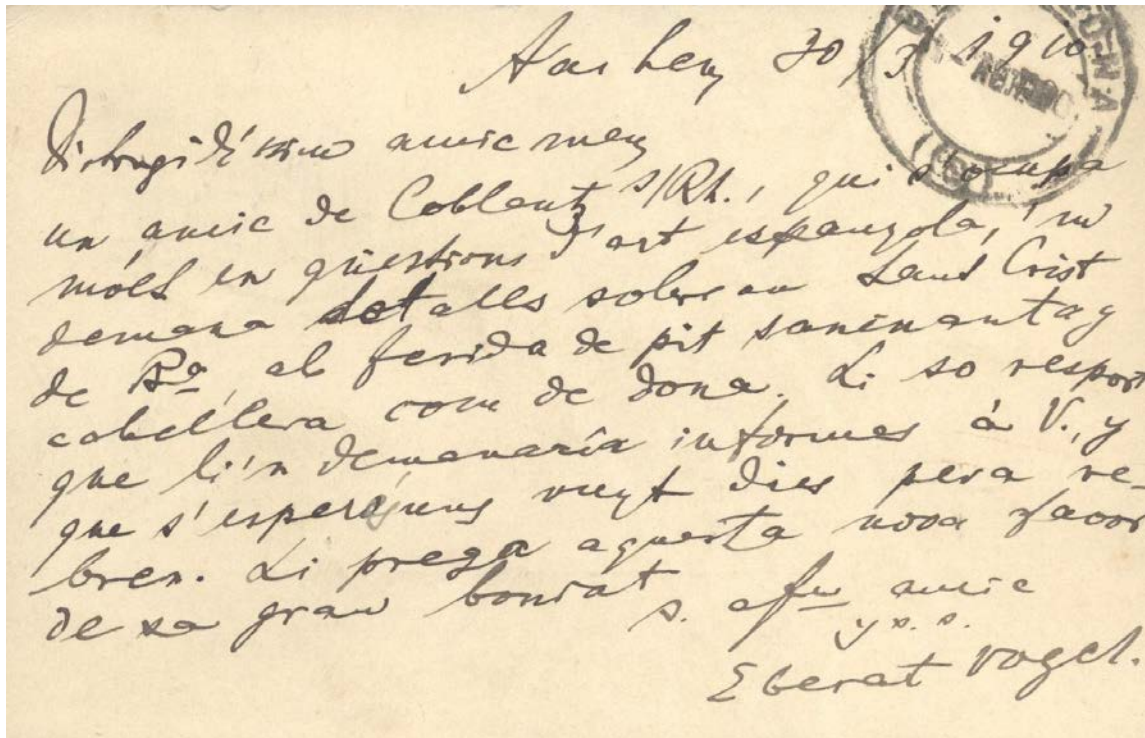 Aachen, 30/3 1910
Distingidíssim amic meu,
un amic de Coblentz s/Rh., qui s'ocupa
molt en questions d'art espanyola, 'm
demana detalls sobre un Sant Crist
de Bª, ab ferida de pit y
cabellera com de dona. Li so respost
que li'n demanaría informes á V., y
que s'esperás uns vuyt dies pera re-
bren. Li prega aquesta nova favor
de sa gran bondat
s. afm amic
y s. s.
Eberat Vogel.